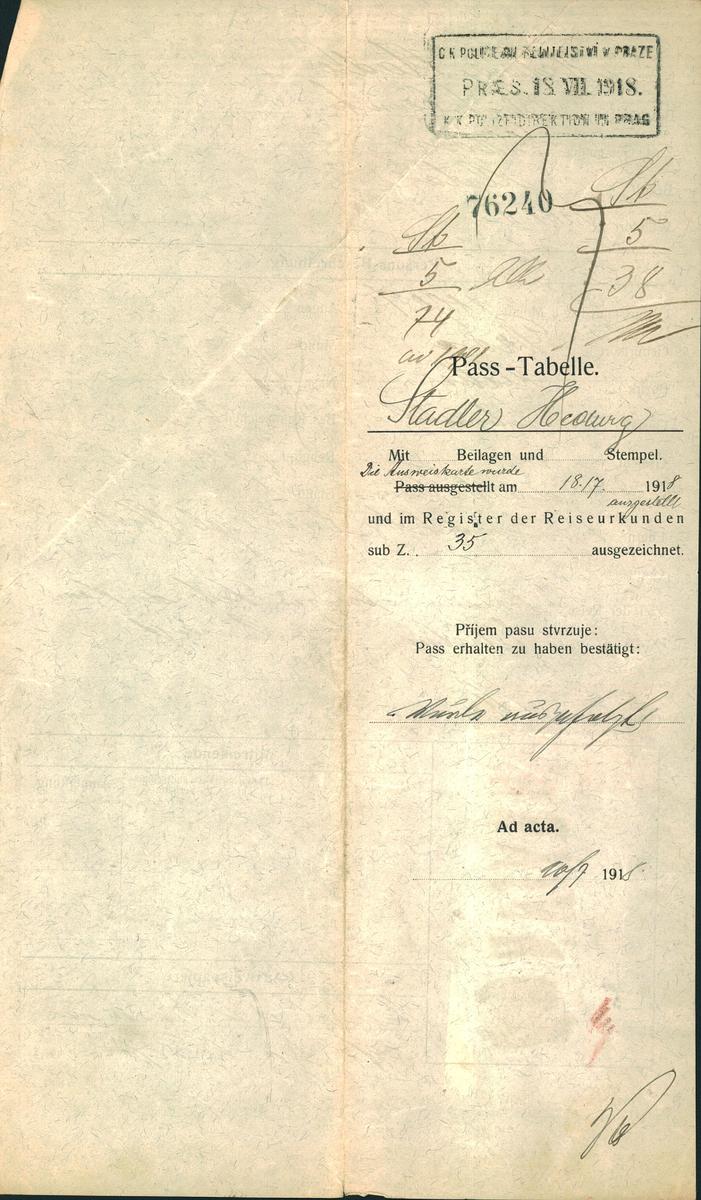 C K POLICEJNÍ ŘEDITELSTVÍ v PRAZE
PRÆS. 18. VII. 1918.
K K POLIZEIDIREKTION IN PRAG
76240
St
5
38
St
5
74
Pass-Tabelle.
Stadler Hedwig
Mit Beilagen und Stempel.
Die Ausweiskarte wurde
Pass ausgestellt am 18.17. 1918
ausgestellt
und im Register der Reiseurkunden
sub Z. 35 ausgezeichnet.
Příjem pasu stvrzuje:
Pass erhalten zu haben bestätigt:
Ad acta.
1918